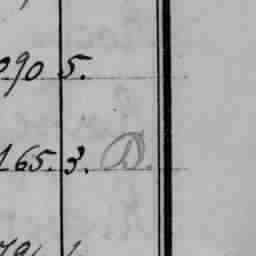 090 5.
165. 3. D.